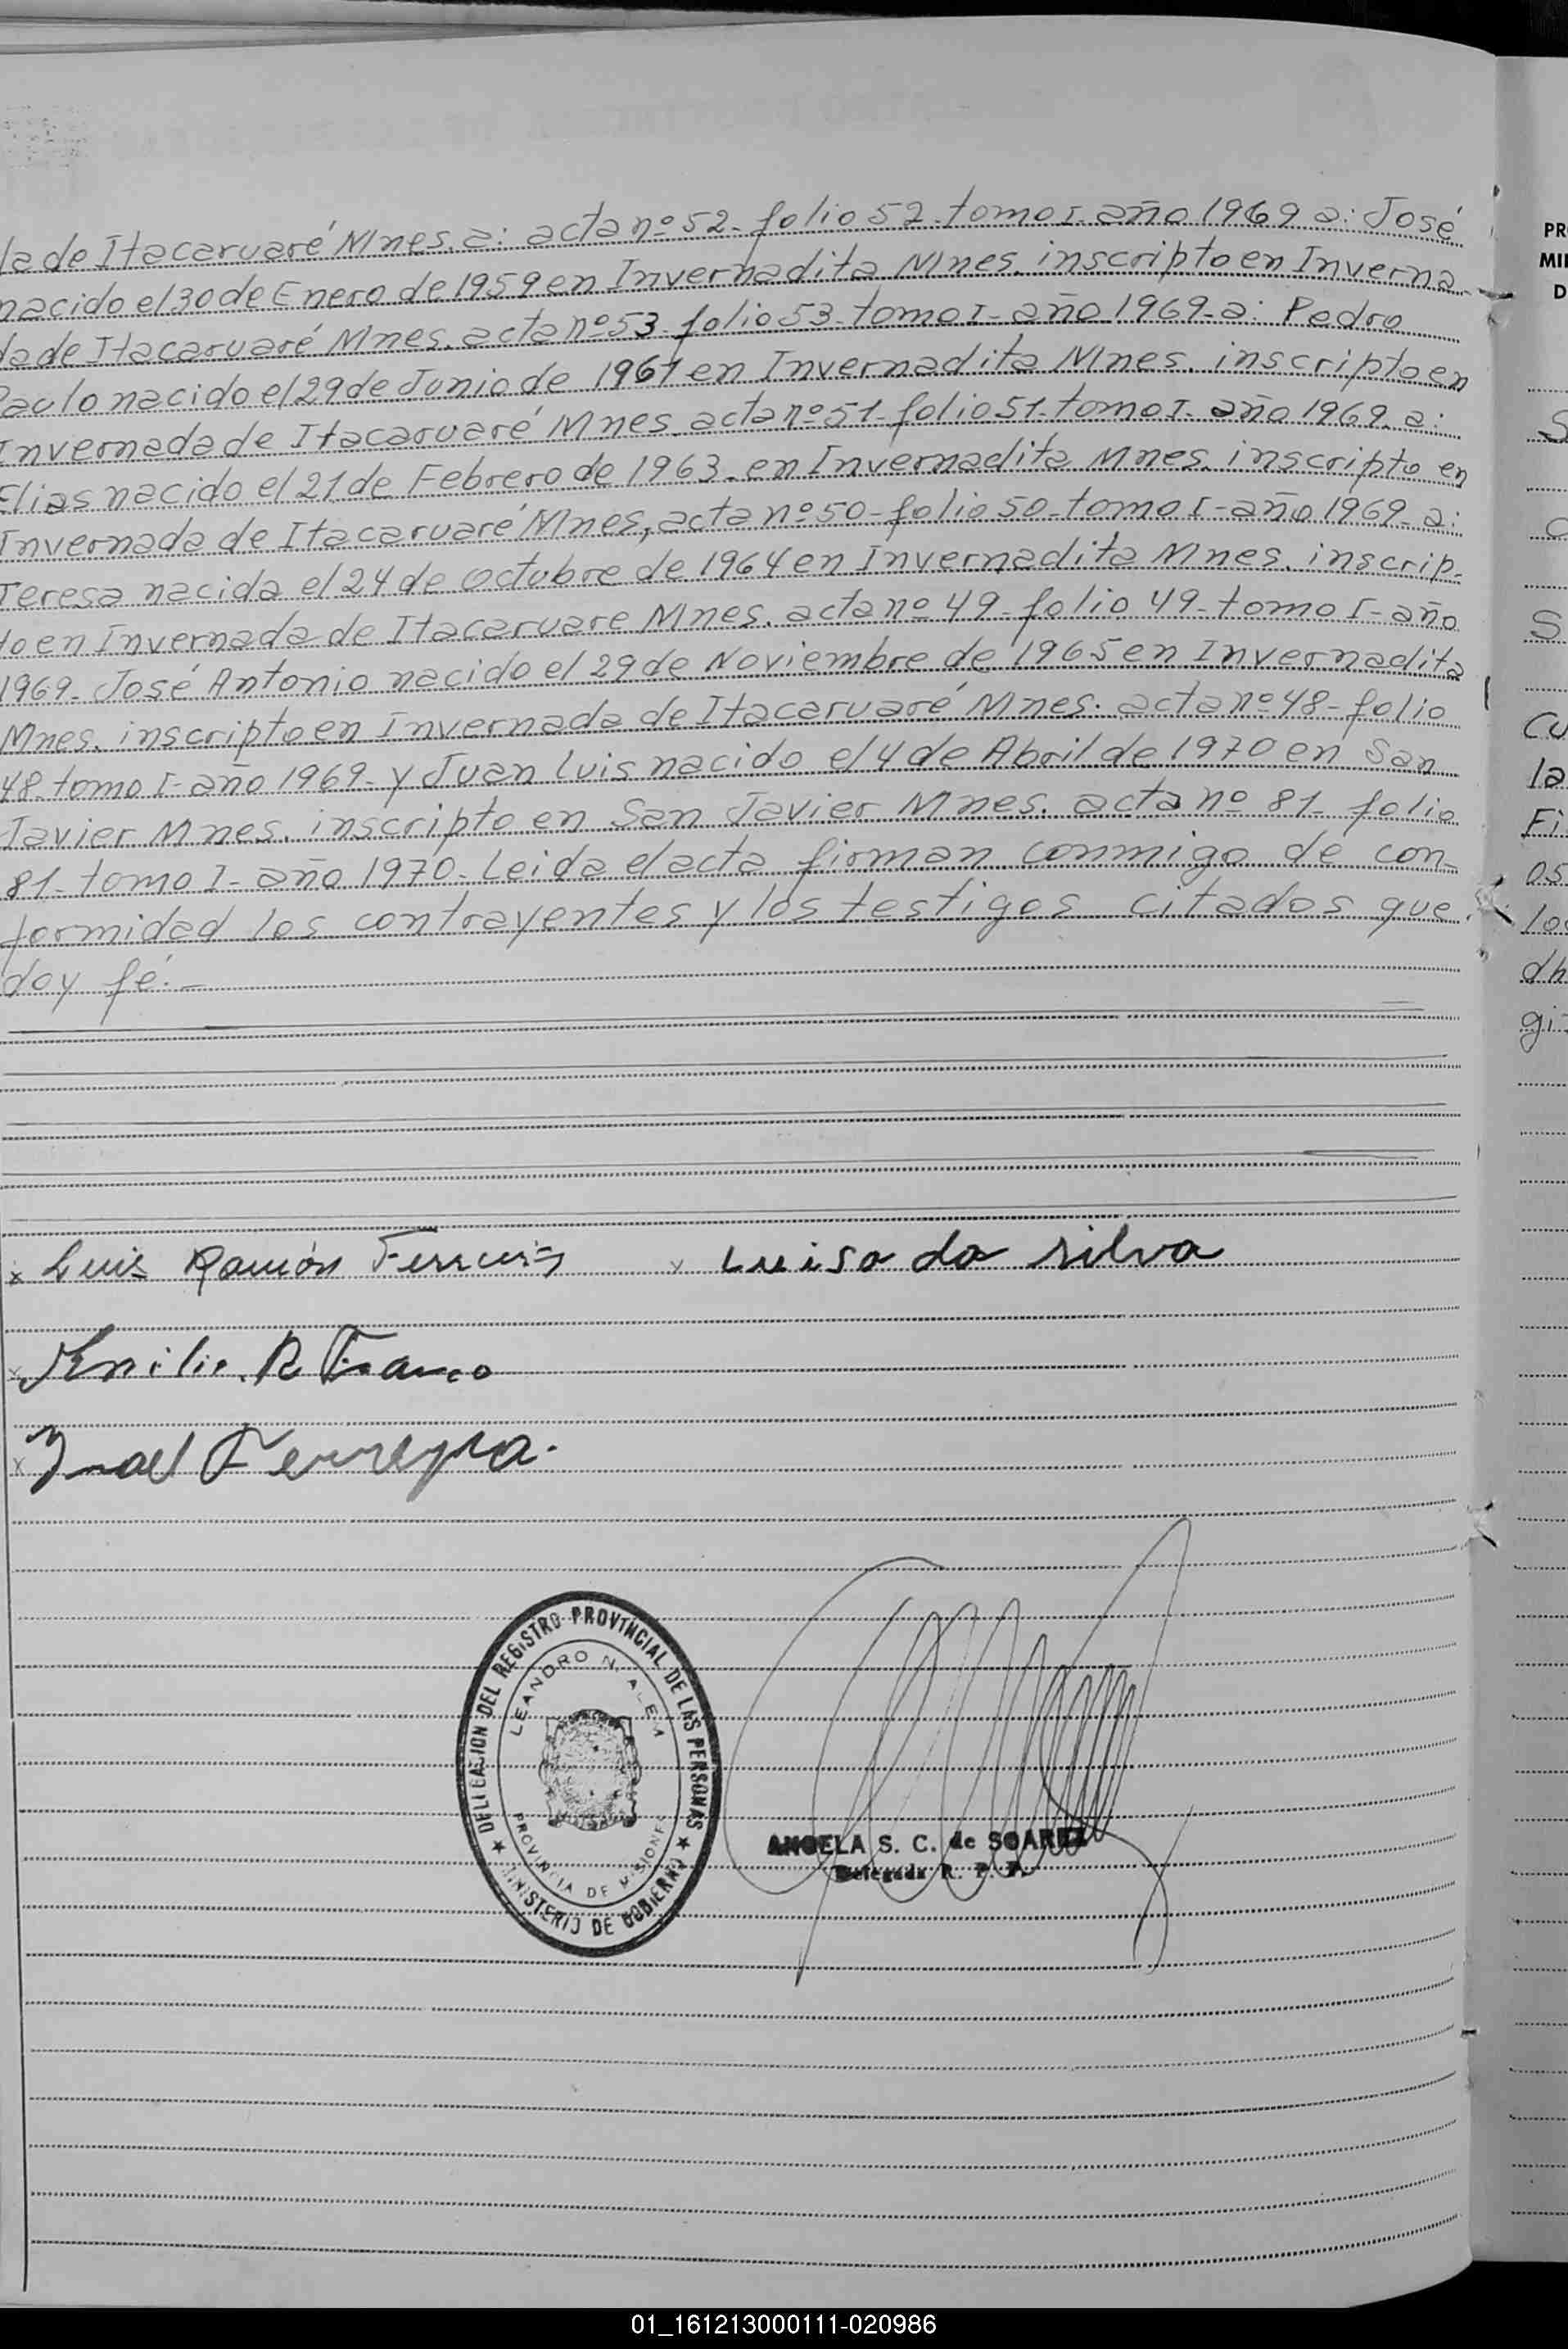 da de Itacaruaré Mnes. a: acta nº 52- folio 52- tomo I- año 1969 a: José
nacido el 30 de Enero de 1959 en Invernadita Mnes. inscripto en Inverna-
da de Itacaruaré Mnes. acta nº 53- folio 53- tomo I- año 1969- a: Pedro
Paulo nacido el 29 de Junio de 1961 en Invernadita Mnes. inscripto en
Invernada de Itacaruaré Mnes. acta nº 51- folio 51- tomo I- año 1969. a:
Elias nacido el 21 de Febrero de 1963- en Invernadita Mnes. inscripto en
Invernada de Itacaruaré Mnes, acta nº 50- folio 50- tomo I- año 1969- a:
Teresa nacida el 24 de Octubre de 1964 en Invernadita Mnes. inscrip-
to en Invernada de Itacaruare Mnes. acta nº 49- folio 49- tomo I- año
1969- José Antonio nacido el 29 de Noviembre de 1965 en Invernadita
Mnes. inscripto en Invernada de Itacaruaré Mnes. acta nº 48- folio
48- tomo I- año 1969- y Juan Luis nacido el 4 de Abril de 1970 en San
Javier Mnes. inscripto en San Javier Mnes. acta nº 81- folio
81- tomo I- año 1970- Leida el acta firman conmigo de con-
formidad los contrayentes y los testigos citados que
doy fé.-
x Luis Ramón x Luisa da silva
x R Franco
x Ferreyra.
DELEGACION DEL REGISTRO PROVINCIAL DE LAS PERSONAS
LEANDRO N. ALEM
PROVINCIA DE MISIONES
★ MINISTERIO DE GOBIERNO ★
ANGELA S. C. de SOAREZ
Delegada R. P. P.
PR
MI
D
S
C
S
Cu
la
Fi
os
lo
dh
gi
01_161213000111-020986